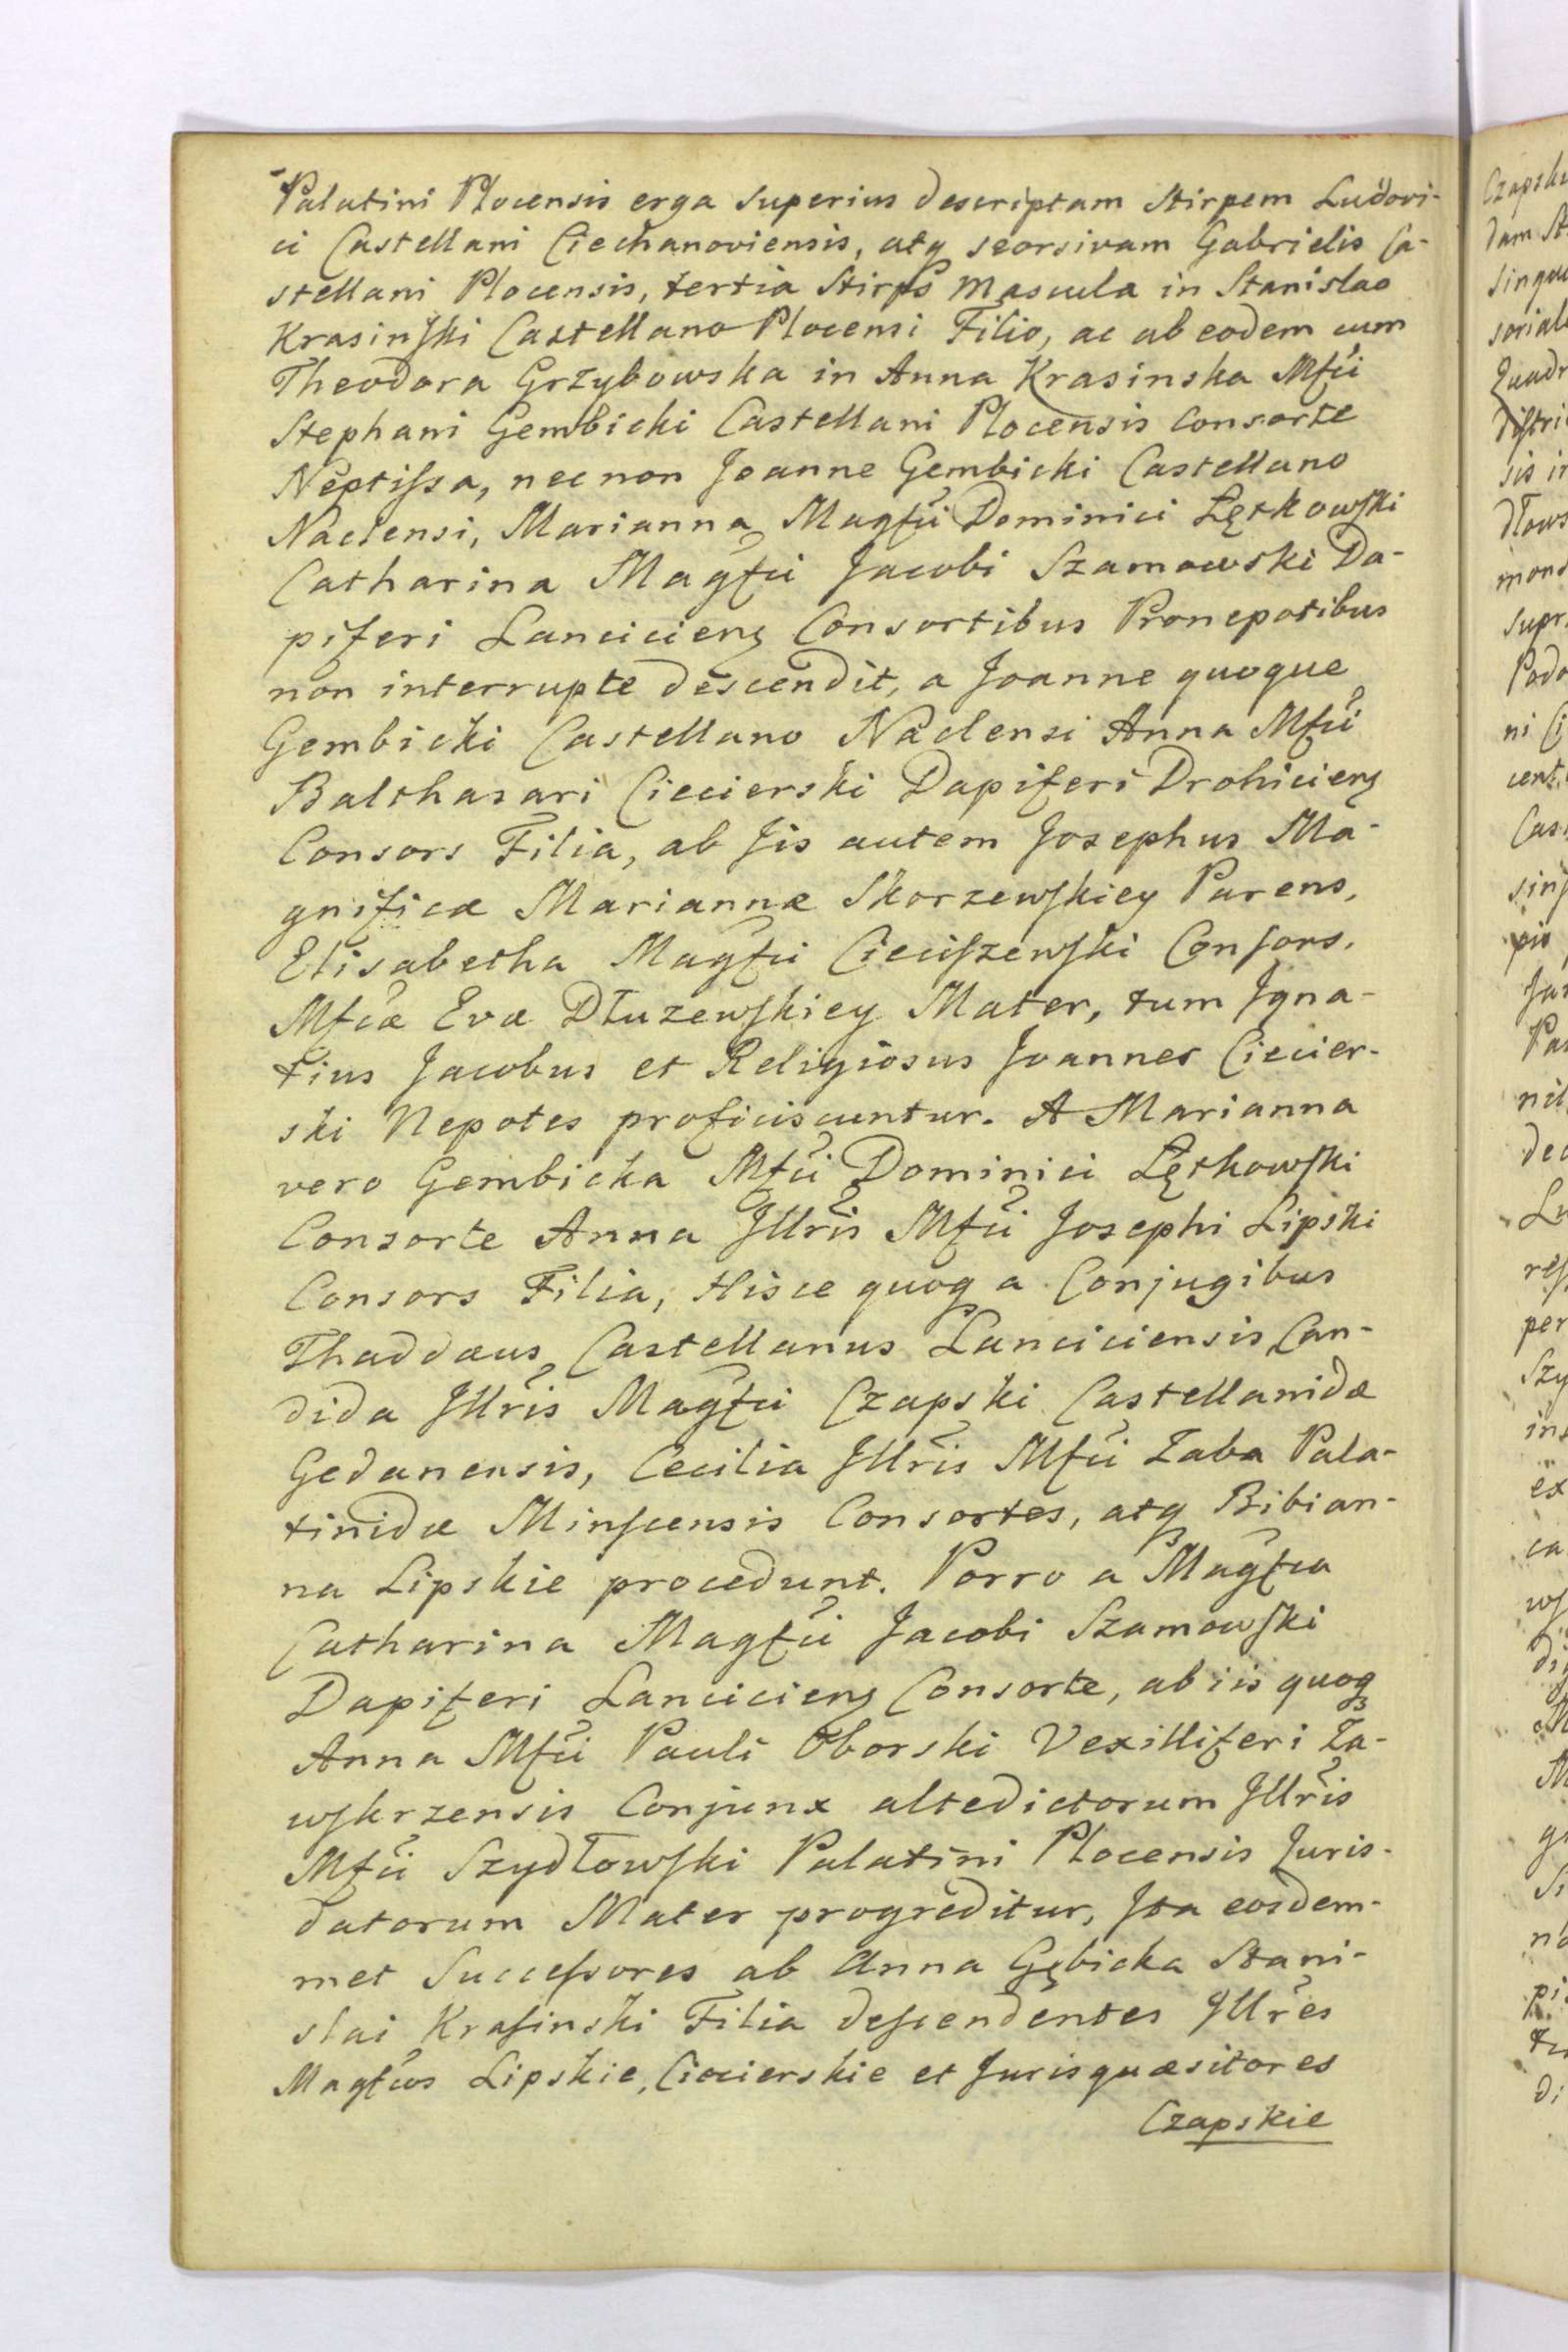 Palatini Plocensis erga superius descriptam Stirpem Ludovi-
ci Castellani Ciechanoviensis, atq seorsivam Gabrielis Ca-
stellani Plocensis, tertia Stirps Mascula in Stanislao
Krasinſki Castellano Plocensi Filio, ac ab eodem cum
Theodora Grzybowska in Anna Krasinska Mfci
Stephani Gembicki Castellani Plocensis Consorte
Neptiſsa, nec non Joanne Gembicki Castellano
Naclensi, Marianna Magfci Dominici Łętkowſki
Catharina Magfci Jacobi Szamowski Da-
piferi Lanciciens Consortibus Pronepotibus
non interrupte descendit, a Joanne quoque
Gembicki Castellano Naclensi Anna Mfci
Balthasari Ciecierski Dapiferi Drohiciens
Consors Filia, ab Jis autem Josephus Ma-
gnificæ Mariannæ Skorzewſkiey Parens,
Elisabetha Magfci Cieciſzewſki Conſors,
Mfcæ Evæ Dłuzewſkiey Mater, tum Jgna-
tius Jacobus et Religiosus Joannes Ciecier-
ski Nepotes proficiscuntur. A Marianna
vero Gembicka Mfci Dominici Łętkowſki
Consorte Anna Jllris Mfci Josephi Lipski
Consors Filia, Hisce quoq a Conjugibus
Thaddæus Castellanus Lanciciensis, Can-
dida Jllris Magfci Czapski Castellanidæ
Gedanensis, Cecilia Jllris Mfci Zaba Pala-
tinidæ Minſcensis Consortes, atq Bibian-
na Lipskie procedunt. Porro a Magfca
Catharina Magfci Jacobi Szamowſki
Dapiferi Lanciciens Consorte, ab iis quoq
Anna Mfci Pauli Oborski Vexilliferi Za-
wſkrzensis Conjunx altedictorum Jllris
Mfci Szydłowſki Palatini Plocensis Juris-
datorum Mater progreditur, Jta eosdem-
met Succeſsores ab Anna Gębicka Stani-
slai Kraſinski Filia deſcendentes Jllres
Magfcos Lipskie, Ciecierskie et Jurisquæsitores
Czapskie